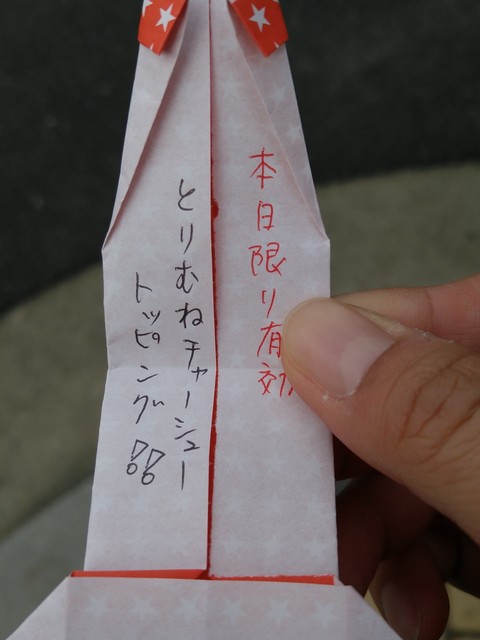 本日限り有効
とりむねチャーシュー
トッピング!!